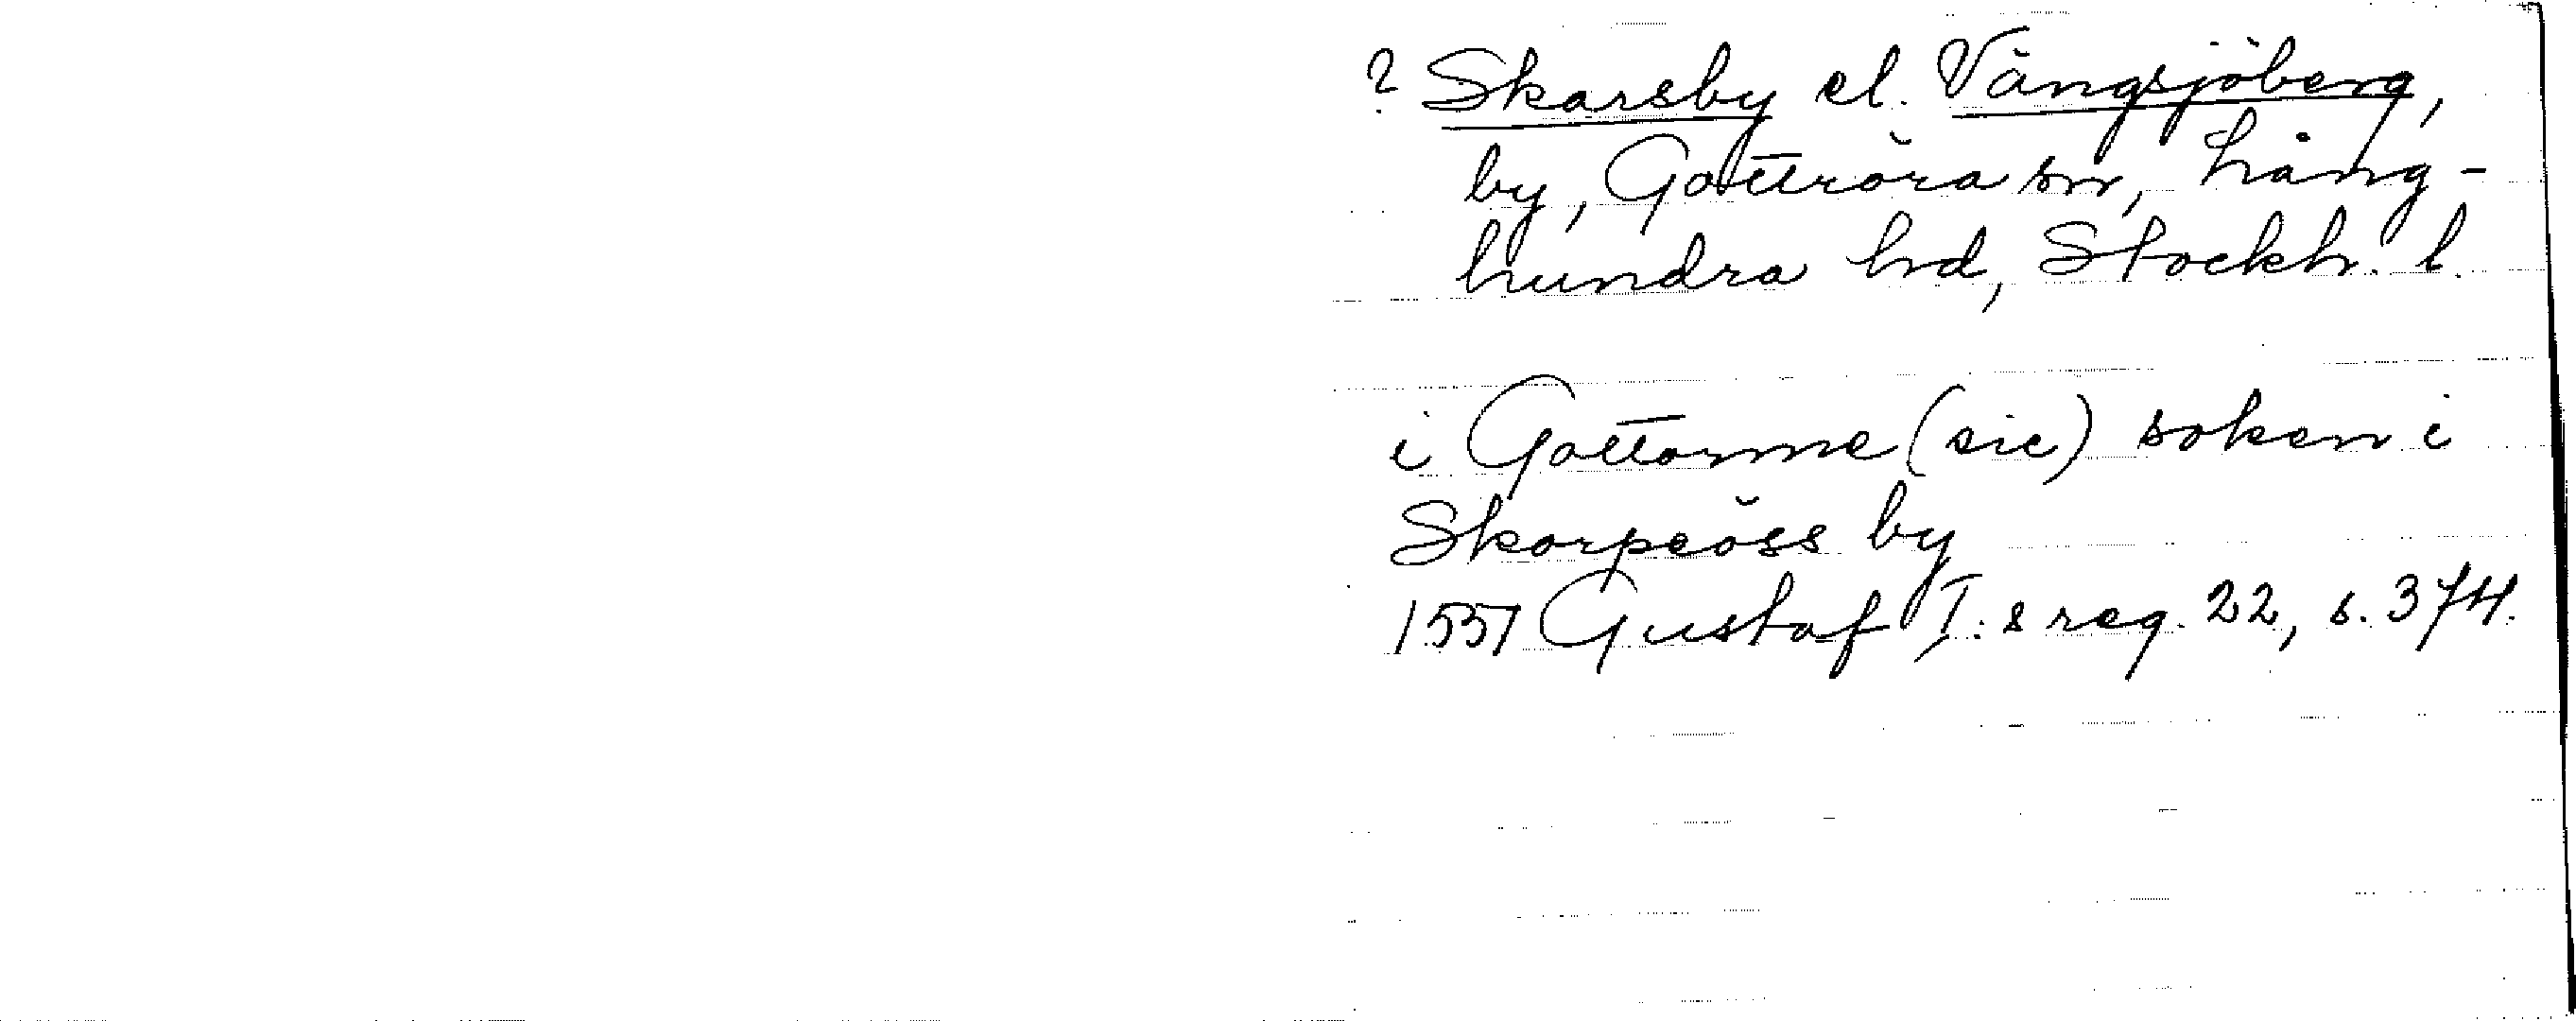 ? Skarsby el. Vängsjöberg,
by, Gottröra sn, Lång-
hundra hd, Stockh. l.
i Gottorme (sic) soken i
Skorpeöss by
1551 Gustaf I:s reg. 22, s. 374.